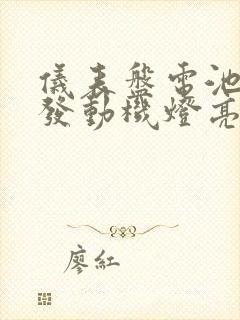 儀表盤電池
發動機燈亮
廖紅